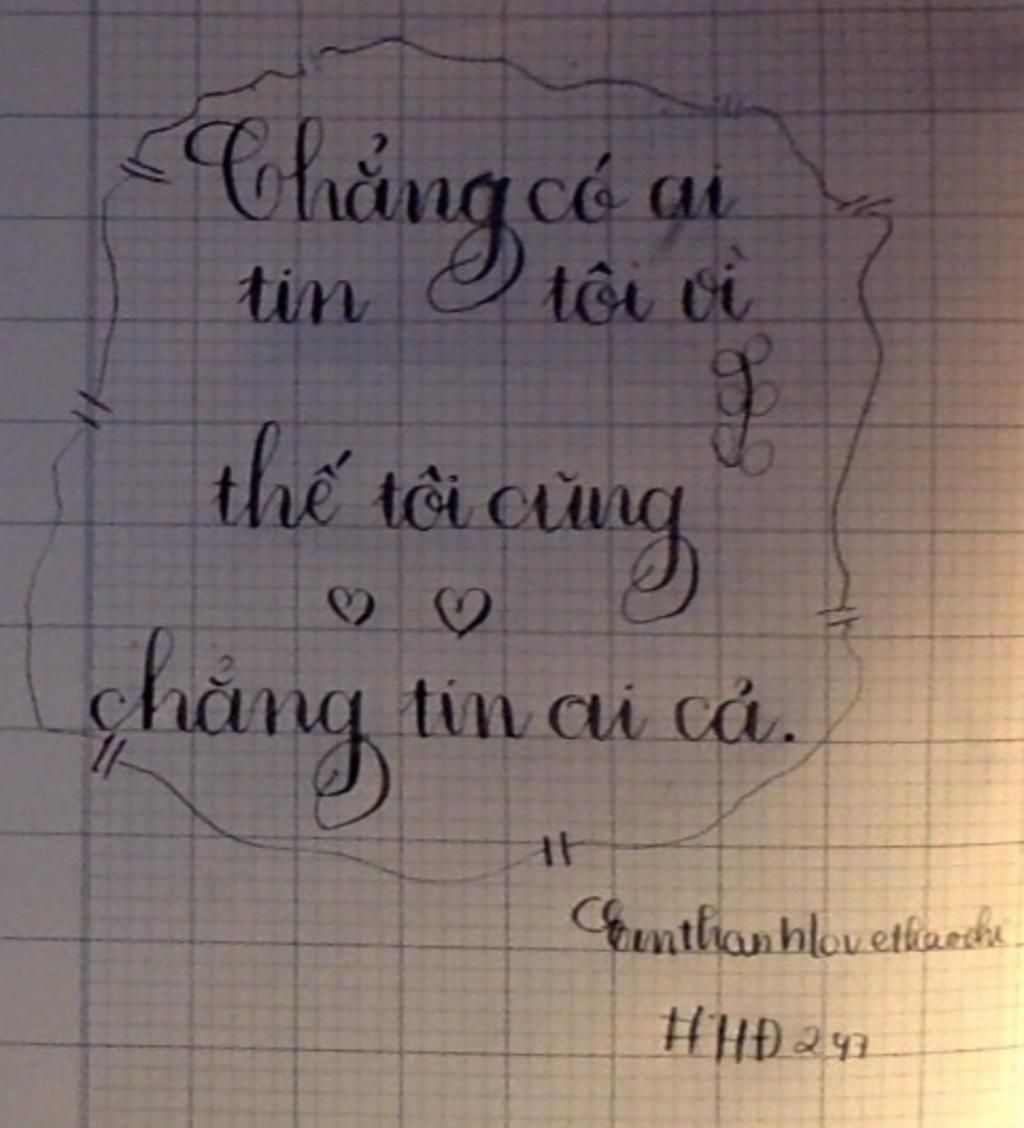 Chẳng có ai
tin tôi vì
thế tôi cũng
chẳng tin ai cả.
#HĐ247